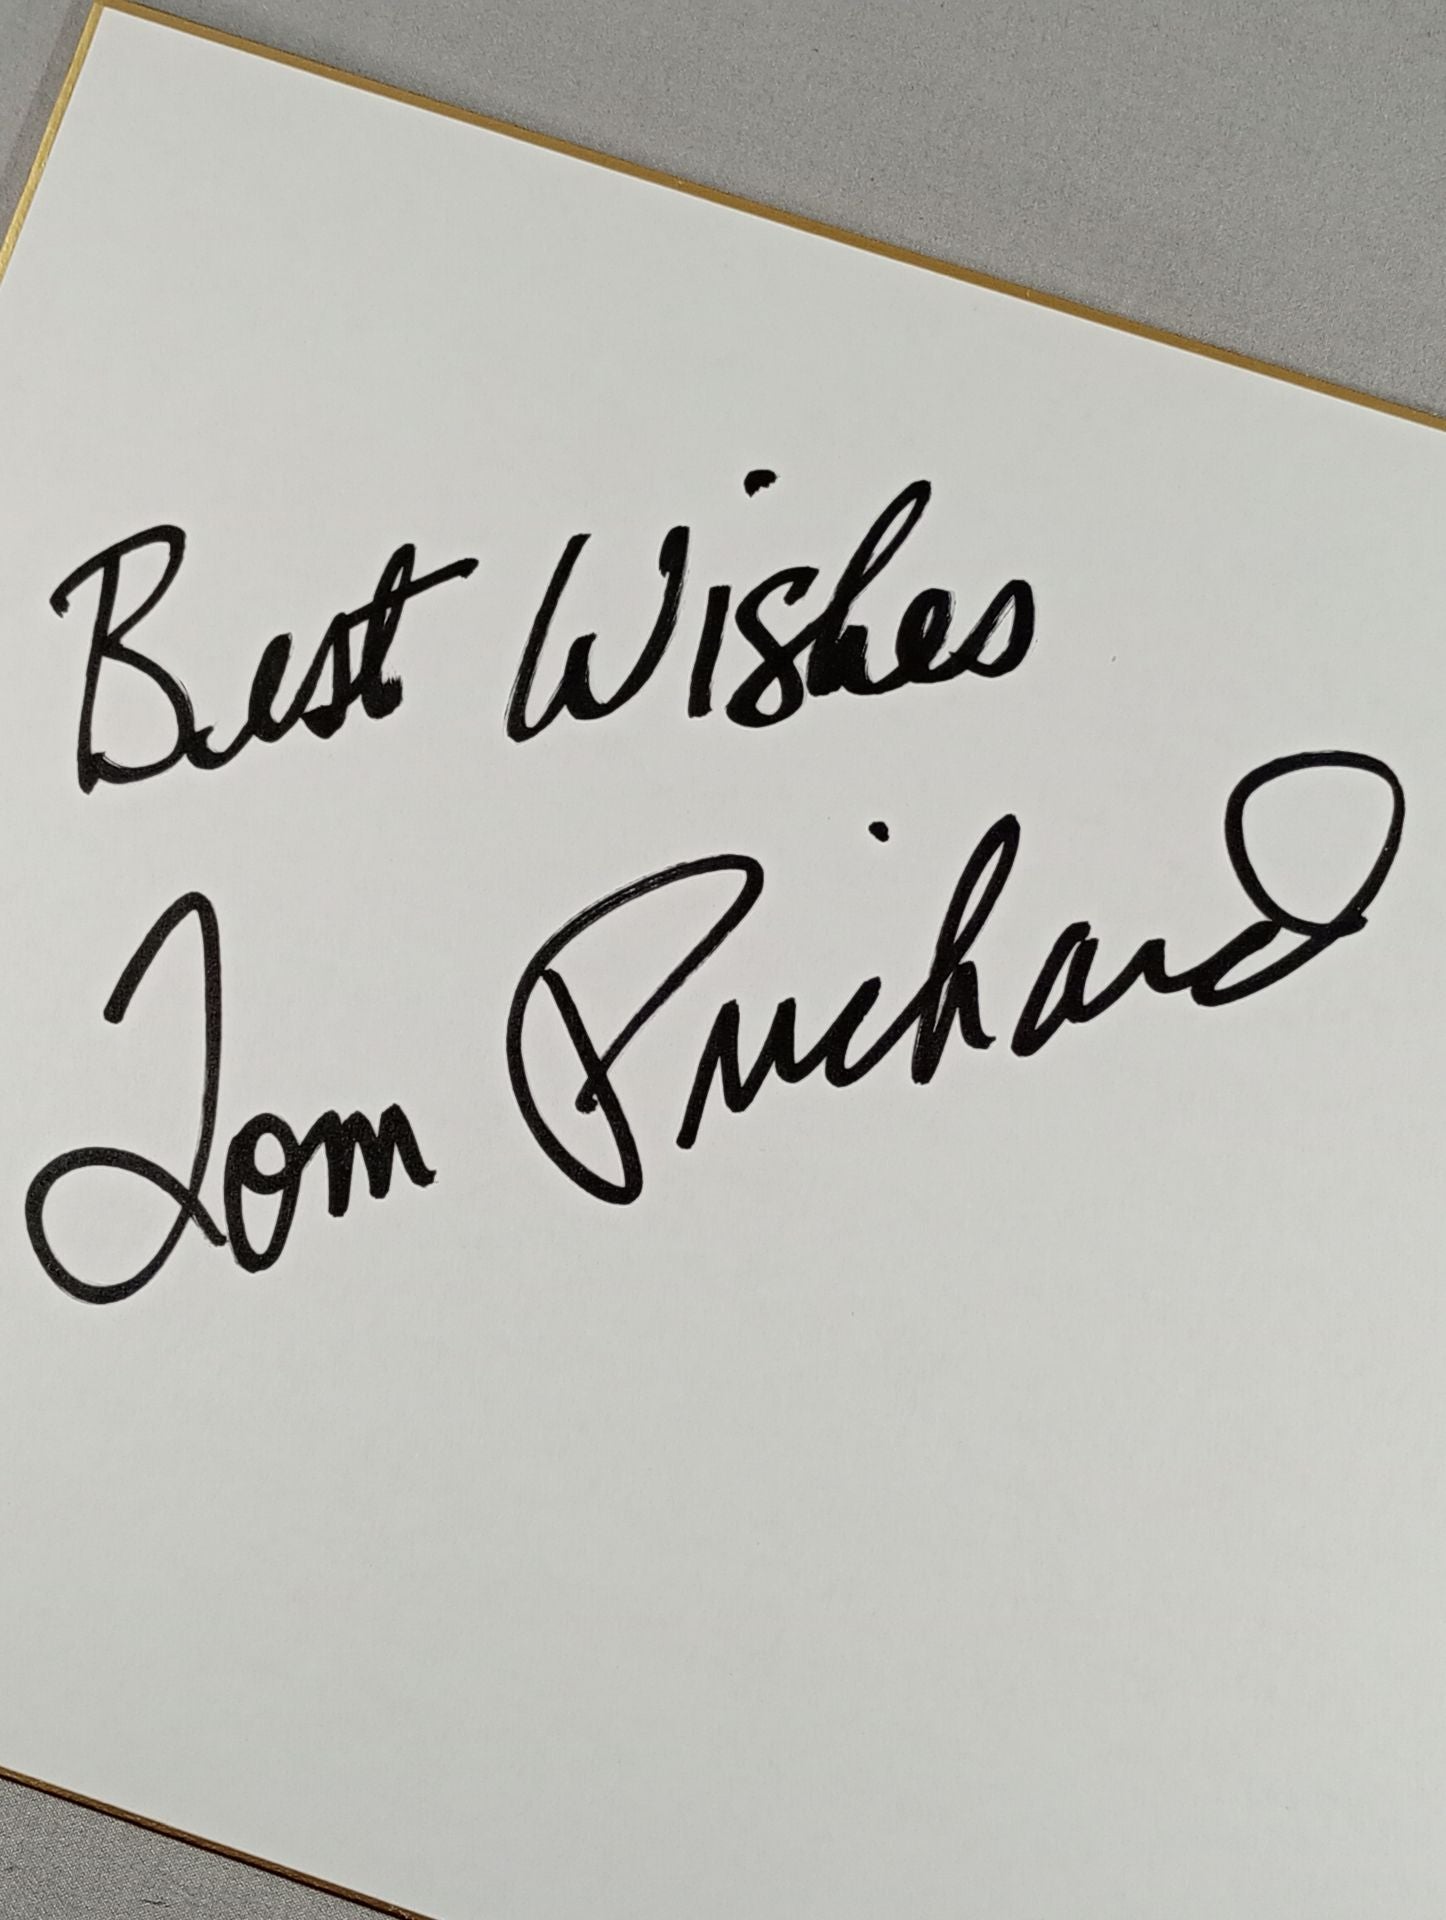 Best Wishes
Tom Prichard